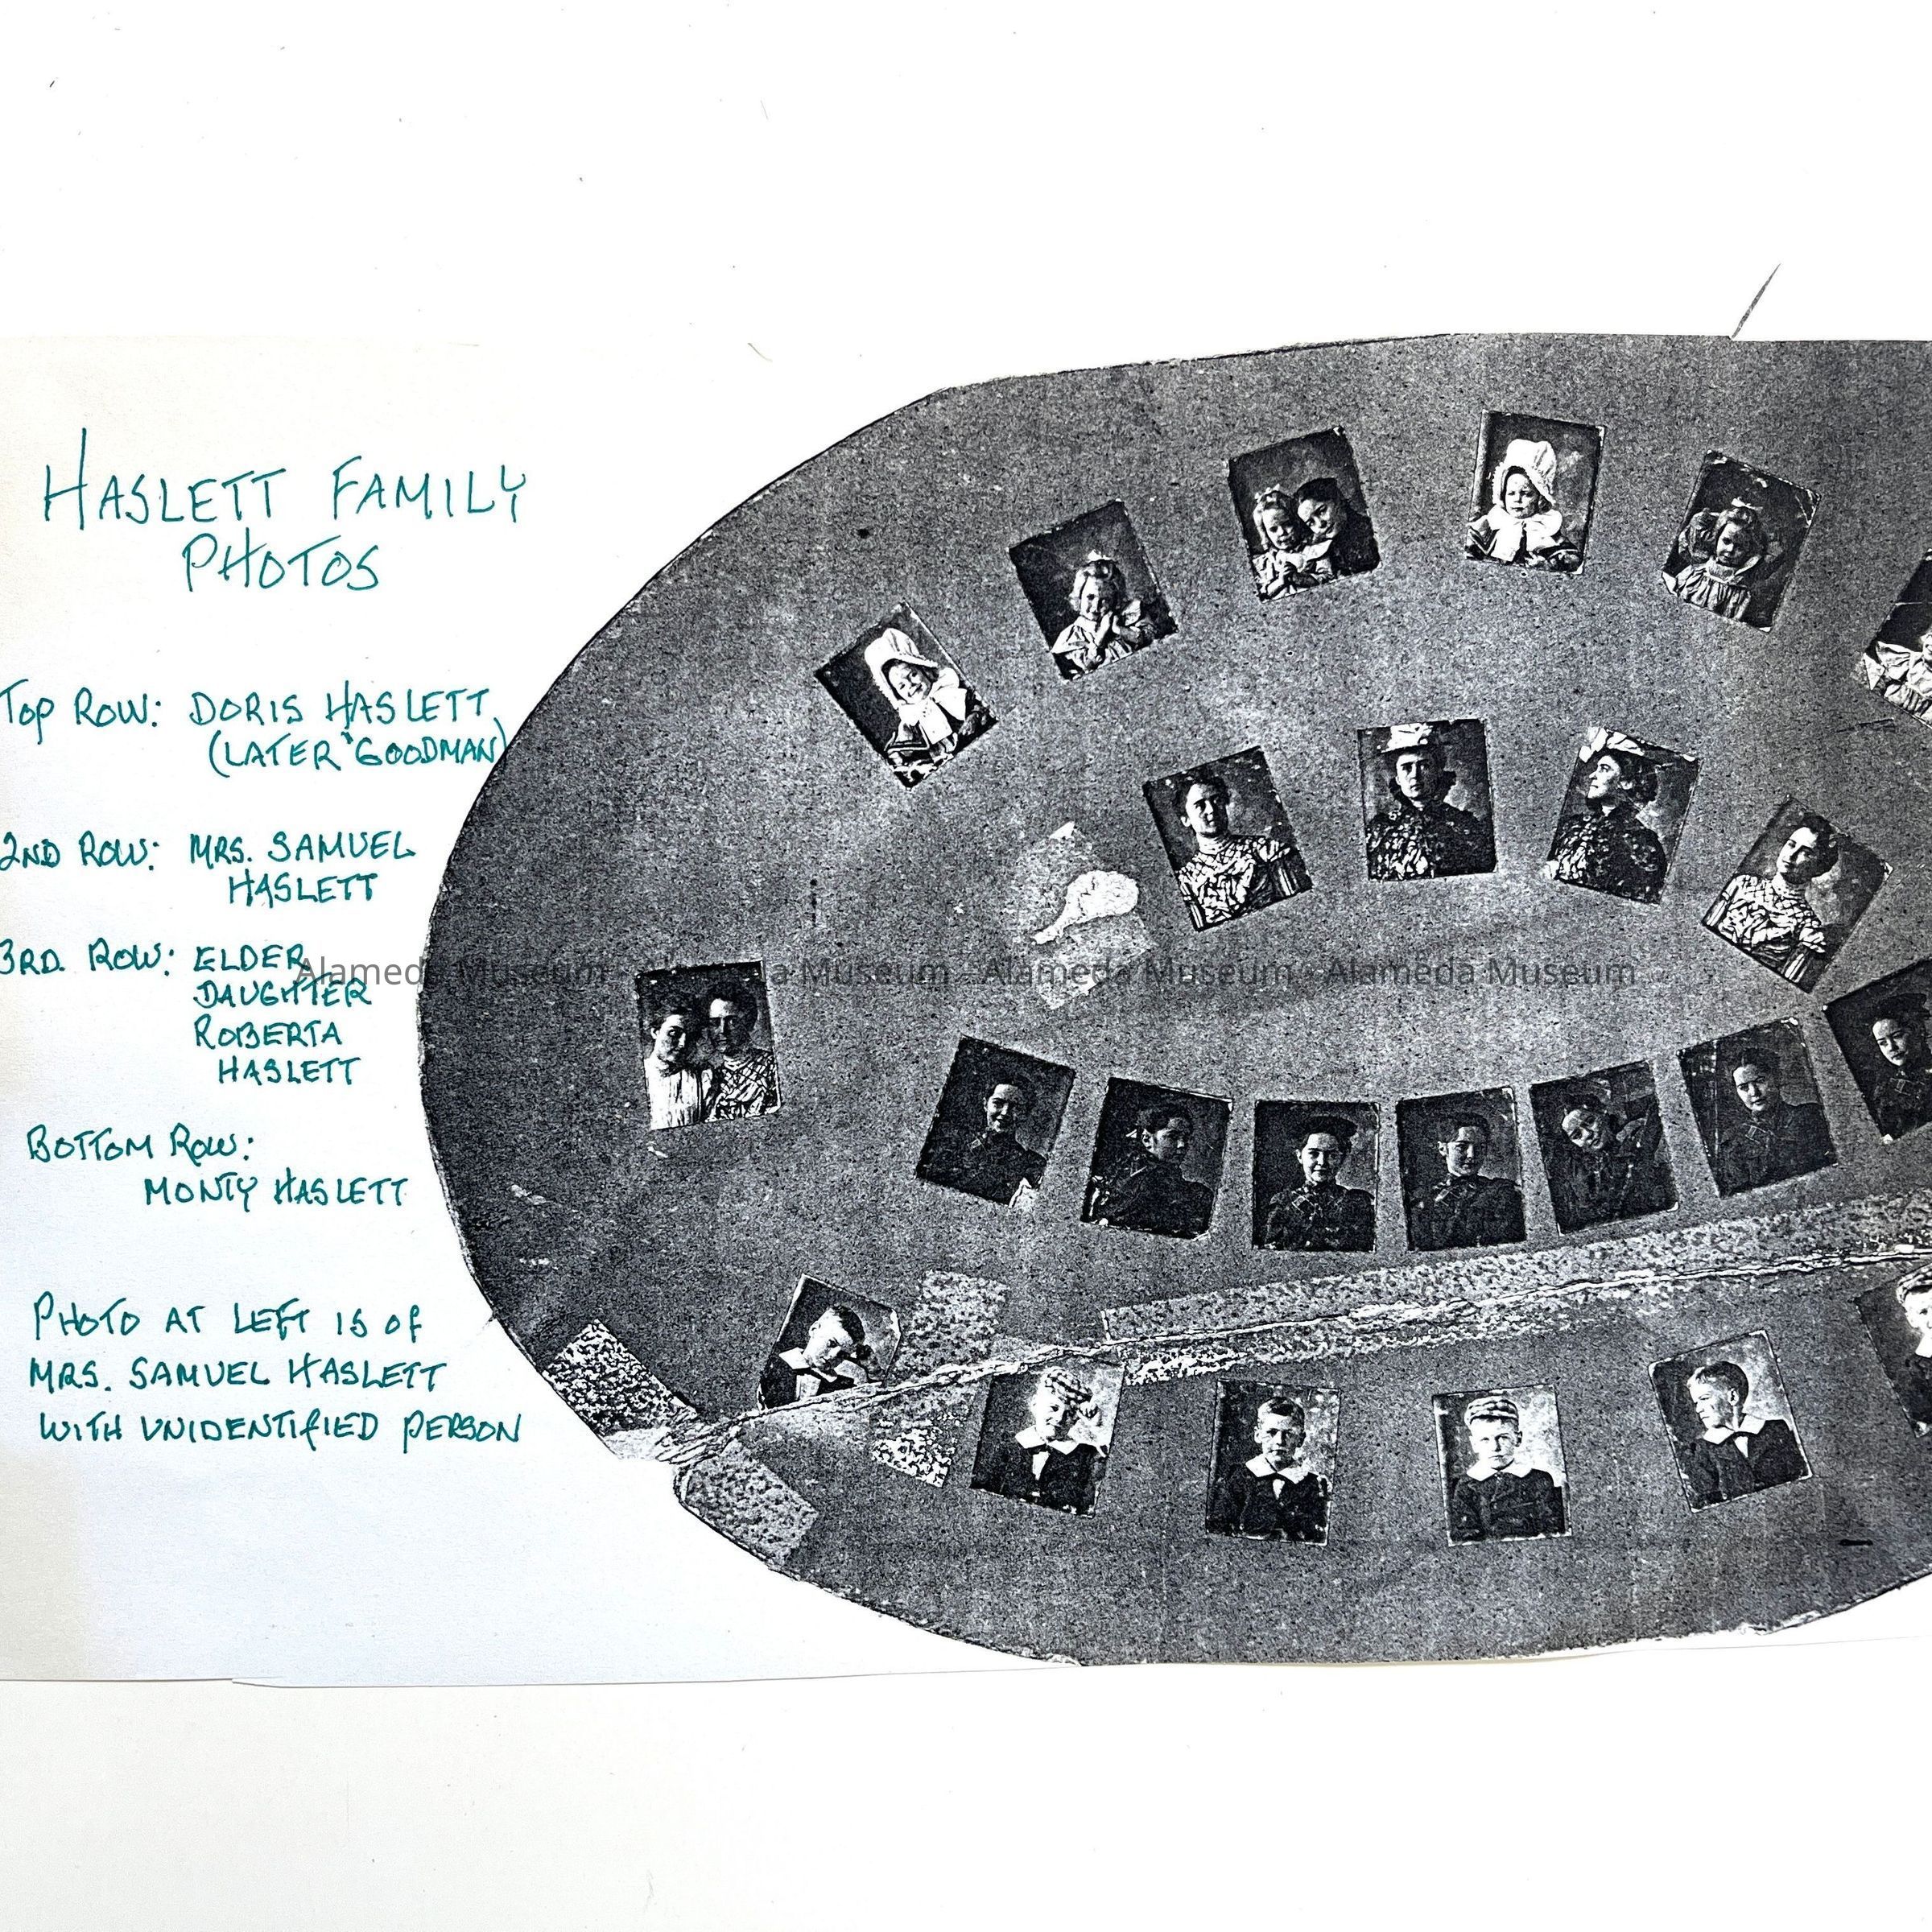 HASLETT FAMILY
PHOTOS
TOP ROW: DORIS HASLETT
(LATER "GOODMAN)
2ND ROW: MRS. SAMUEL
HASLETT
3RD. ROW: ELDER
DAUGHTER
ROBERTA
HASLETT
BOTTOM ROW:
MONTY HASLETT
PHOTO AT LEFT IS OF
MRS. SAMUEL HASLETT
WITH UNIDENTIFIED PERSON
Alameda Museum - Alameda Museum - Alameda Museum - Alameda Museum